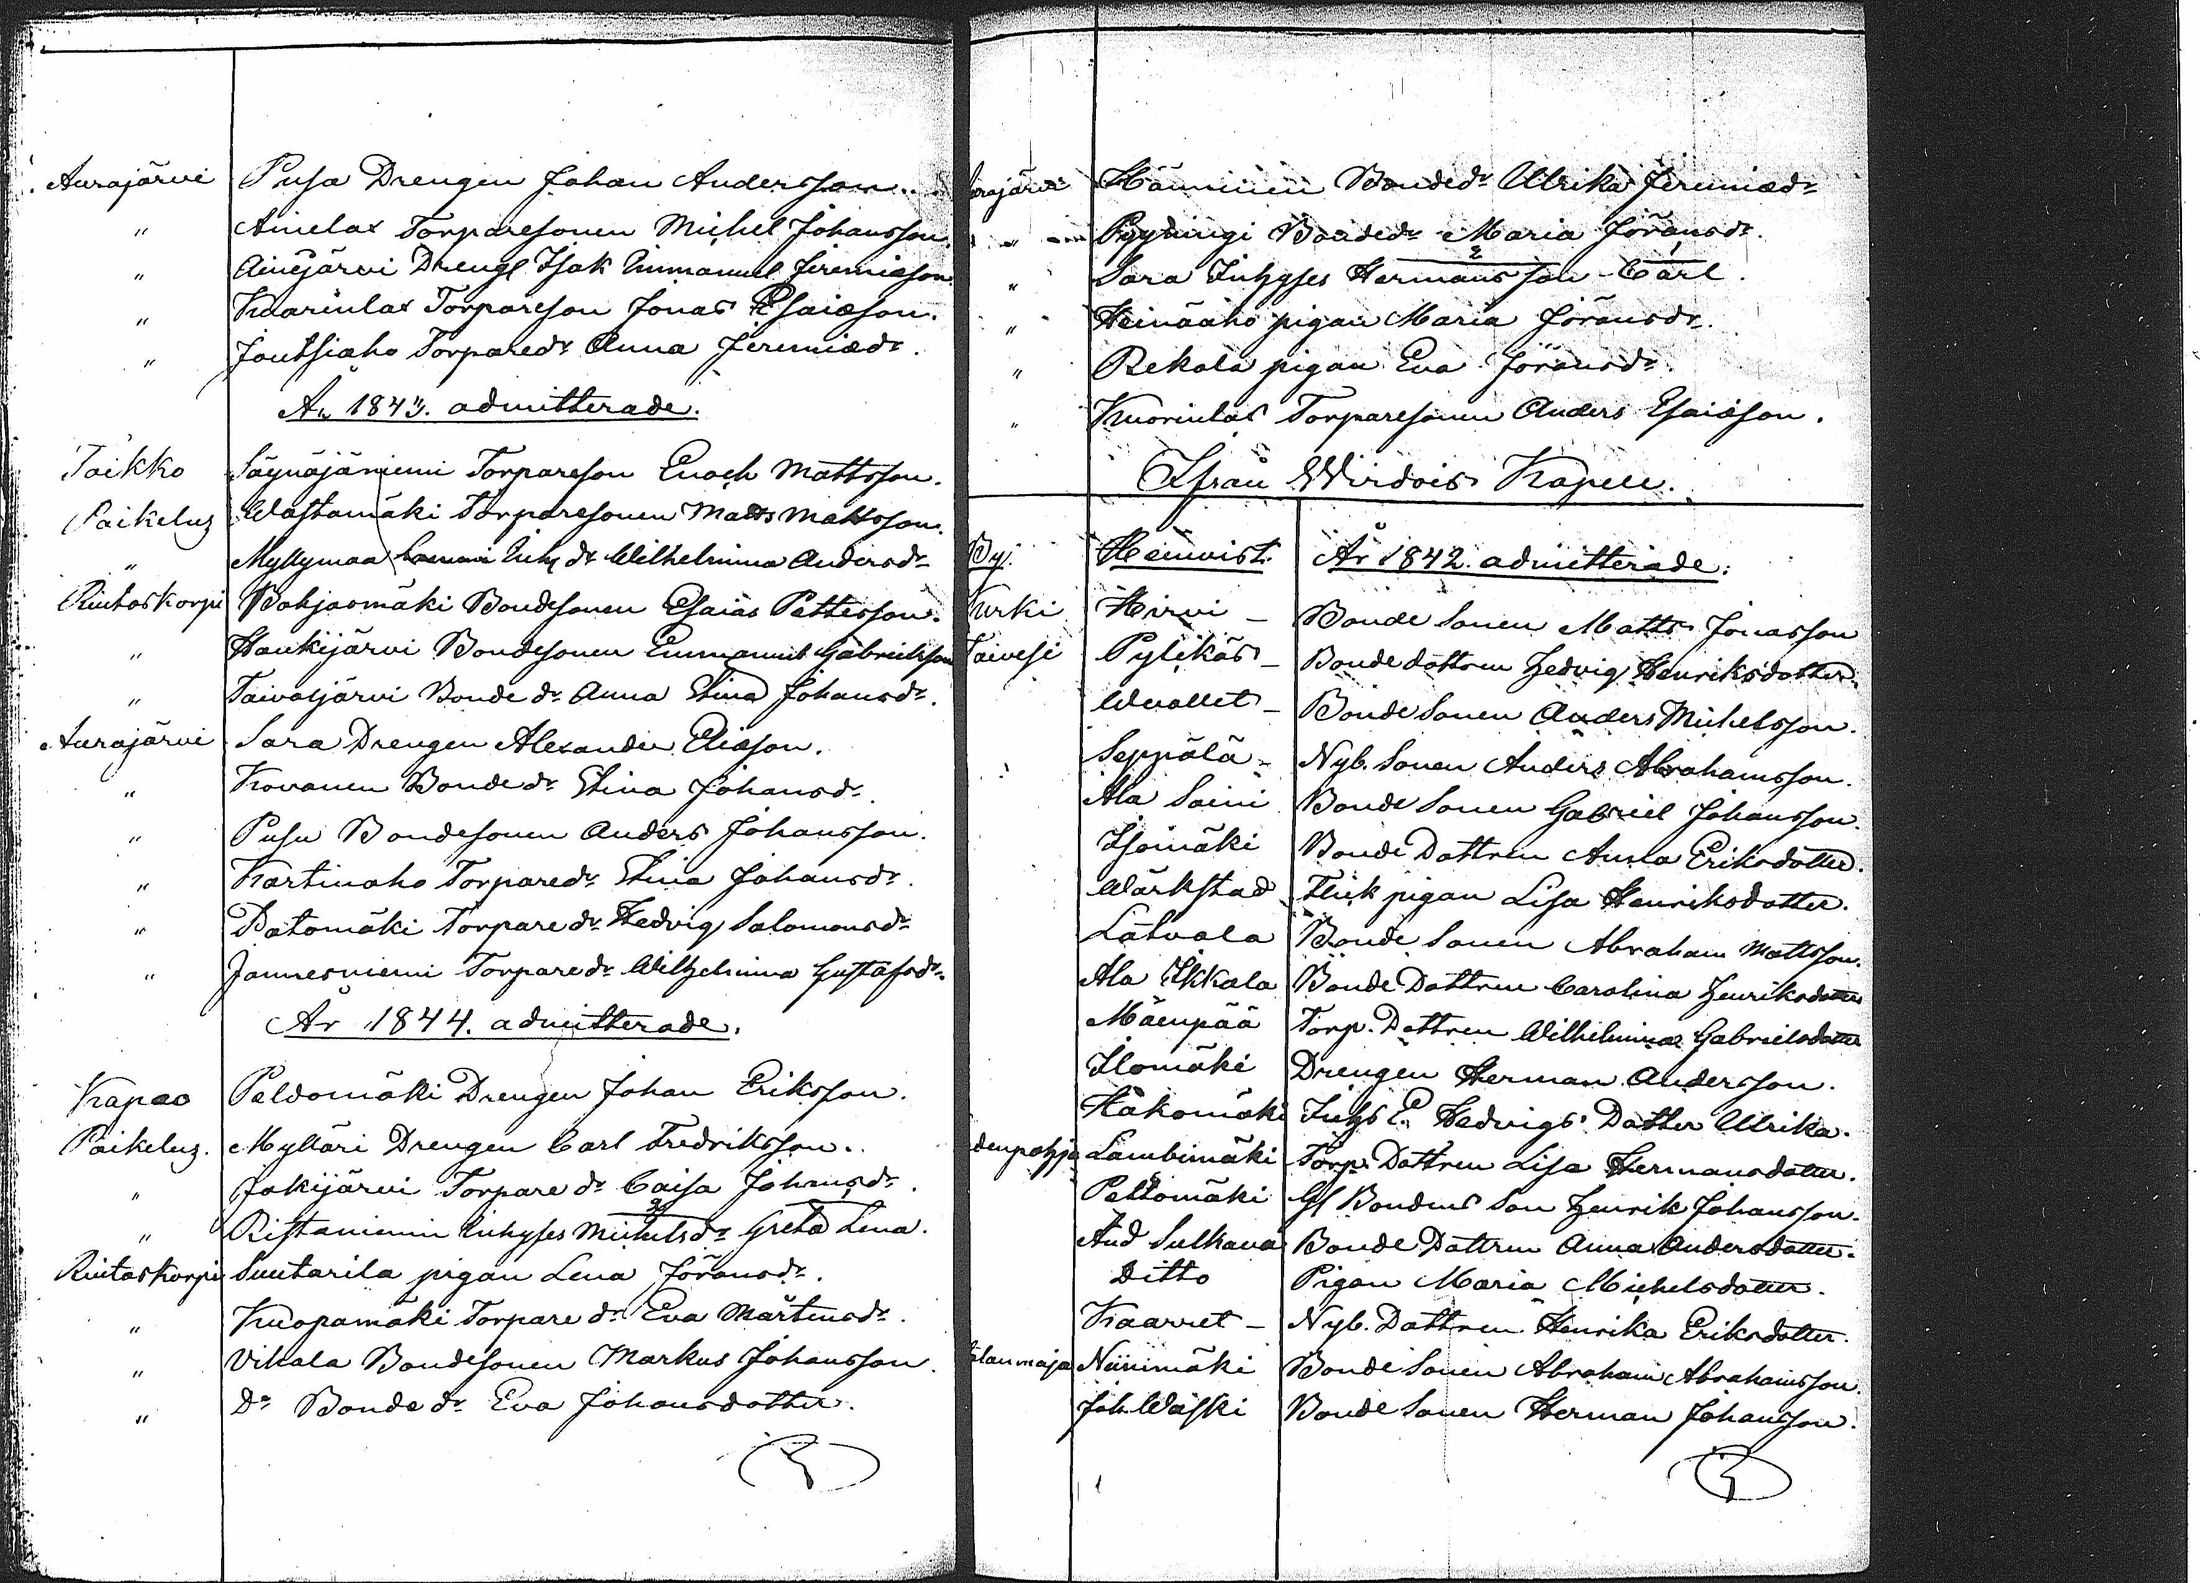 Aurajärvi Pusa Drengen Johan Andersson.
" Ainelax Torparesonen Michel Johansson.
" Ainejärvi Drengl Isak Emmanuel Jeremiæson
" Kuorinlax Torpareson Jonas Esaiæson.
" Joutsiaho Torparedr Anna Jeremiædr.
År 1843. admitterade.
Toikko Säynäjäniemi Torpareson Enoch Mattsson.
Paikelus Wästamäki Torparesonen Matts Mattsson.
" Myllymaa Enk dr Wilhelmina Andersdr
Riutaskorpi Pohjasmäki Bondesonen Esaias Pettersson.
" Haukijärvi Bondesonen Emmanuel Gabrielsson
" Taivaljärvi Bonde dr Anna Stina Johansdr.
Aurajärvi Sara Drengen Alexander Eliæson.
" Kovanen Bonde dr Stina Johansdr.
" Pusu Bondesonen Anders Johansson.
" Kortinaho Torparedr Stina Johansdr.
" Patomäki Torpare dr Hedvig Salomonsdr
" Jannesniemi Torpare dr Wilhelmina Gustafsdr
År 1844. admitterade.
Kapæo Peldomäki Drengen Johan Eriksson.
Paikelus. Mylläri Drengen Carl Fredriksson.
" Jokijärvi Torpare dr Caisa Johansdr.
" Ristaniemi Inhyses Michelsdr Greta Lena.
Riutaskorpi Suutarila pigan Lena Jöransdr.
" Kuopamäki Torpare dr Eva Mårtensdr.
" Vihala Bondesonen Markus Johansson.
" Do Bonde dr Eva Johansdotter.
rajärvi Hänninen Bondedr Ulrika Jeremiædr
" Pyydningi Bondedr Maria Jöransdr.
" Sara Inhyses Hermansson Carl.
" Heinäaho pigan Maria Jöransdr.
" Rekola pigan Eva Jöransdr.
" Kuorinlas Torparesonen Anders Esaiæson.
Ifrån Wirdois Kapell.
By. Hemvist. År 1842 admitterade:
Kurki Hirvi – Bonde Sonen Matts Jonasson
Toivesi Pylikäs – Bonde dottren Hedvig Henriksdotter.
Wuollet – Bonde Sonen Anders Michelsson.
Seppälä – Nyb. Sonen Anders Abrahamsson.
Ala Soini Bonde Sonen Gabriel Johansson.
Isomäki Bonde Dottren Anna Eriksdotter.
Wärkstad Flick pigan Lisa Henriksdotter.
Latvala Bonde Sonen Abraham Mattsson.
Ala Ikkala Bonde Dottren Carolina Henriksdotter
Mäenpää Torp. Dottren Wilhelmina Gabrielsdotter
Ilomäki Drengen Herman Andersson.
Häkomäki Inhys E. Hedvigs Dotter Ulrika.
denpohja Lambimäki Torp. Dottren Lisa Hermansdotter.
Peltomäki Gl Bondens Son Henrik Johansson.
And Sulkava Bonde Dottren Anna Andersdotter.
Ditto Pigan Maria Michelsdotter.
Kaarret – Nyb. Dottren Henrika Eriksdotter.
lanmaja Niinimäki Bonde Sonen Abraham Abrahamsson.
Joh. Wäski Bonde Sonen Herman Johansson.